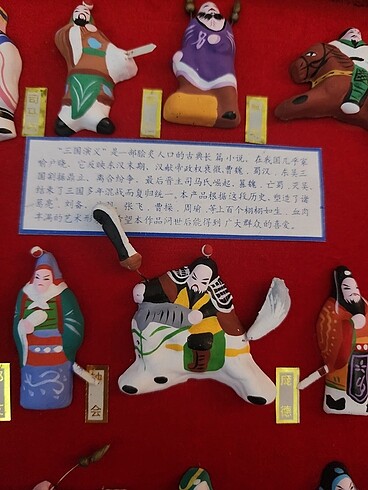 “三国演义”是一部脍炙人口的古典长篇小说，在我国几乎家
喻户晓。它反映东汉末期，汉献帝政权衰微，曹魏、蜀汉、东吴三
国割据鼎立、离合纷争，最后晋主司马氏崛起，篡魏、亡蜀、灭吴，
结束了三国多年混战而复归统一。本产品根据这段历史，塑造了诸
葛亮、刘备、 张飞、曹操、周瑜，等上百个栩栩如生、血肉
丰满的艺术形 望本作品问世后能得到广大群众的喜爱。
钟会
庞德